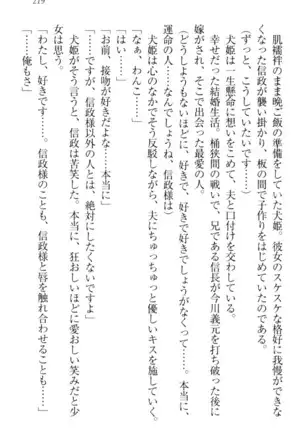 219
肌襦袢のまま晩ご飯の準備をしていた犬姫。彼女のスケスケな格好に我慢ができな
くなった信政が襲い掛かり、板の間で子作りをはじめていたのである。
(ずっと、こうしていたいです……)
犬姫は一生懸命に想いをこめて、夫と口付けを交わしている。
幸せだった結婚生活。桶狭間の戦いで、兄である信長が今川義元を打ち破った後に
嫁がされ、そこで出会った最愛の人。
(どうしようもないほどに、好きで、好きで好きでしょうがなくって……。本当に、
運命の人……なんでしょうね、信政様は)
「なぁ、わんこ……」
「はい……」
「お前、接吻が好きだよな……本当に」
「……ですが、信政様以外の人とは、絶対にしたくないですよ」
犬姫は心のなかでそう反駁しながら、夫にちゅっちゅっと優しいキスを施していく。
犬姫がそう言うと、信政は苦笑した。本当に、狂おしいほどに愛おしい笑みだと少
女は思う。
「わたし、好きです……。信政様のことも、信政様と唇を触れ合わせることも……」
「……俺もさ」